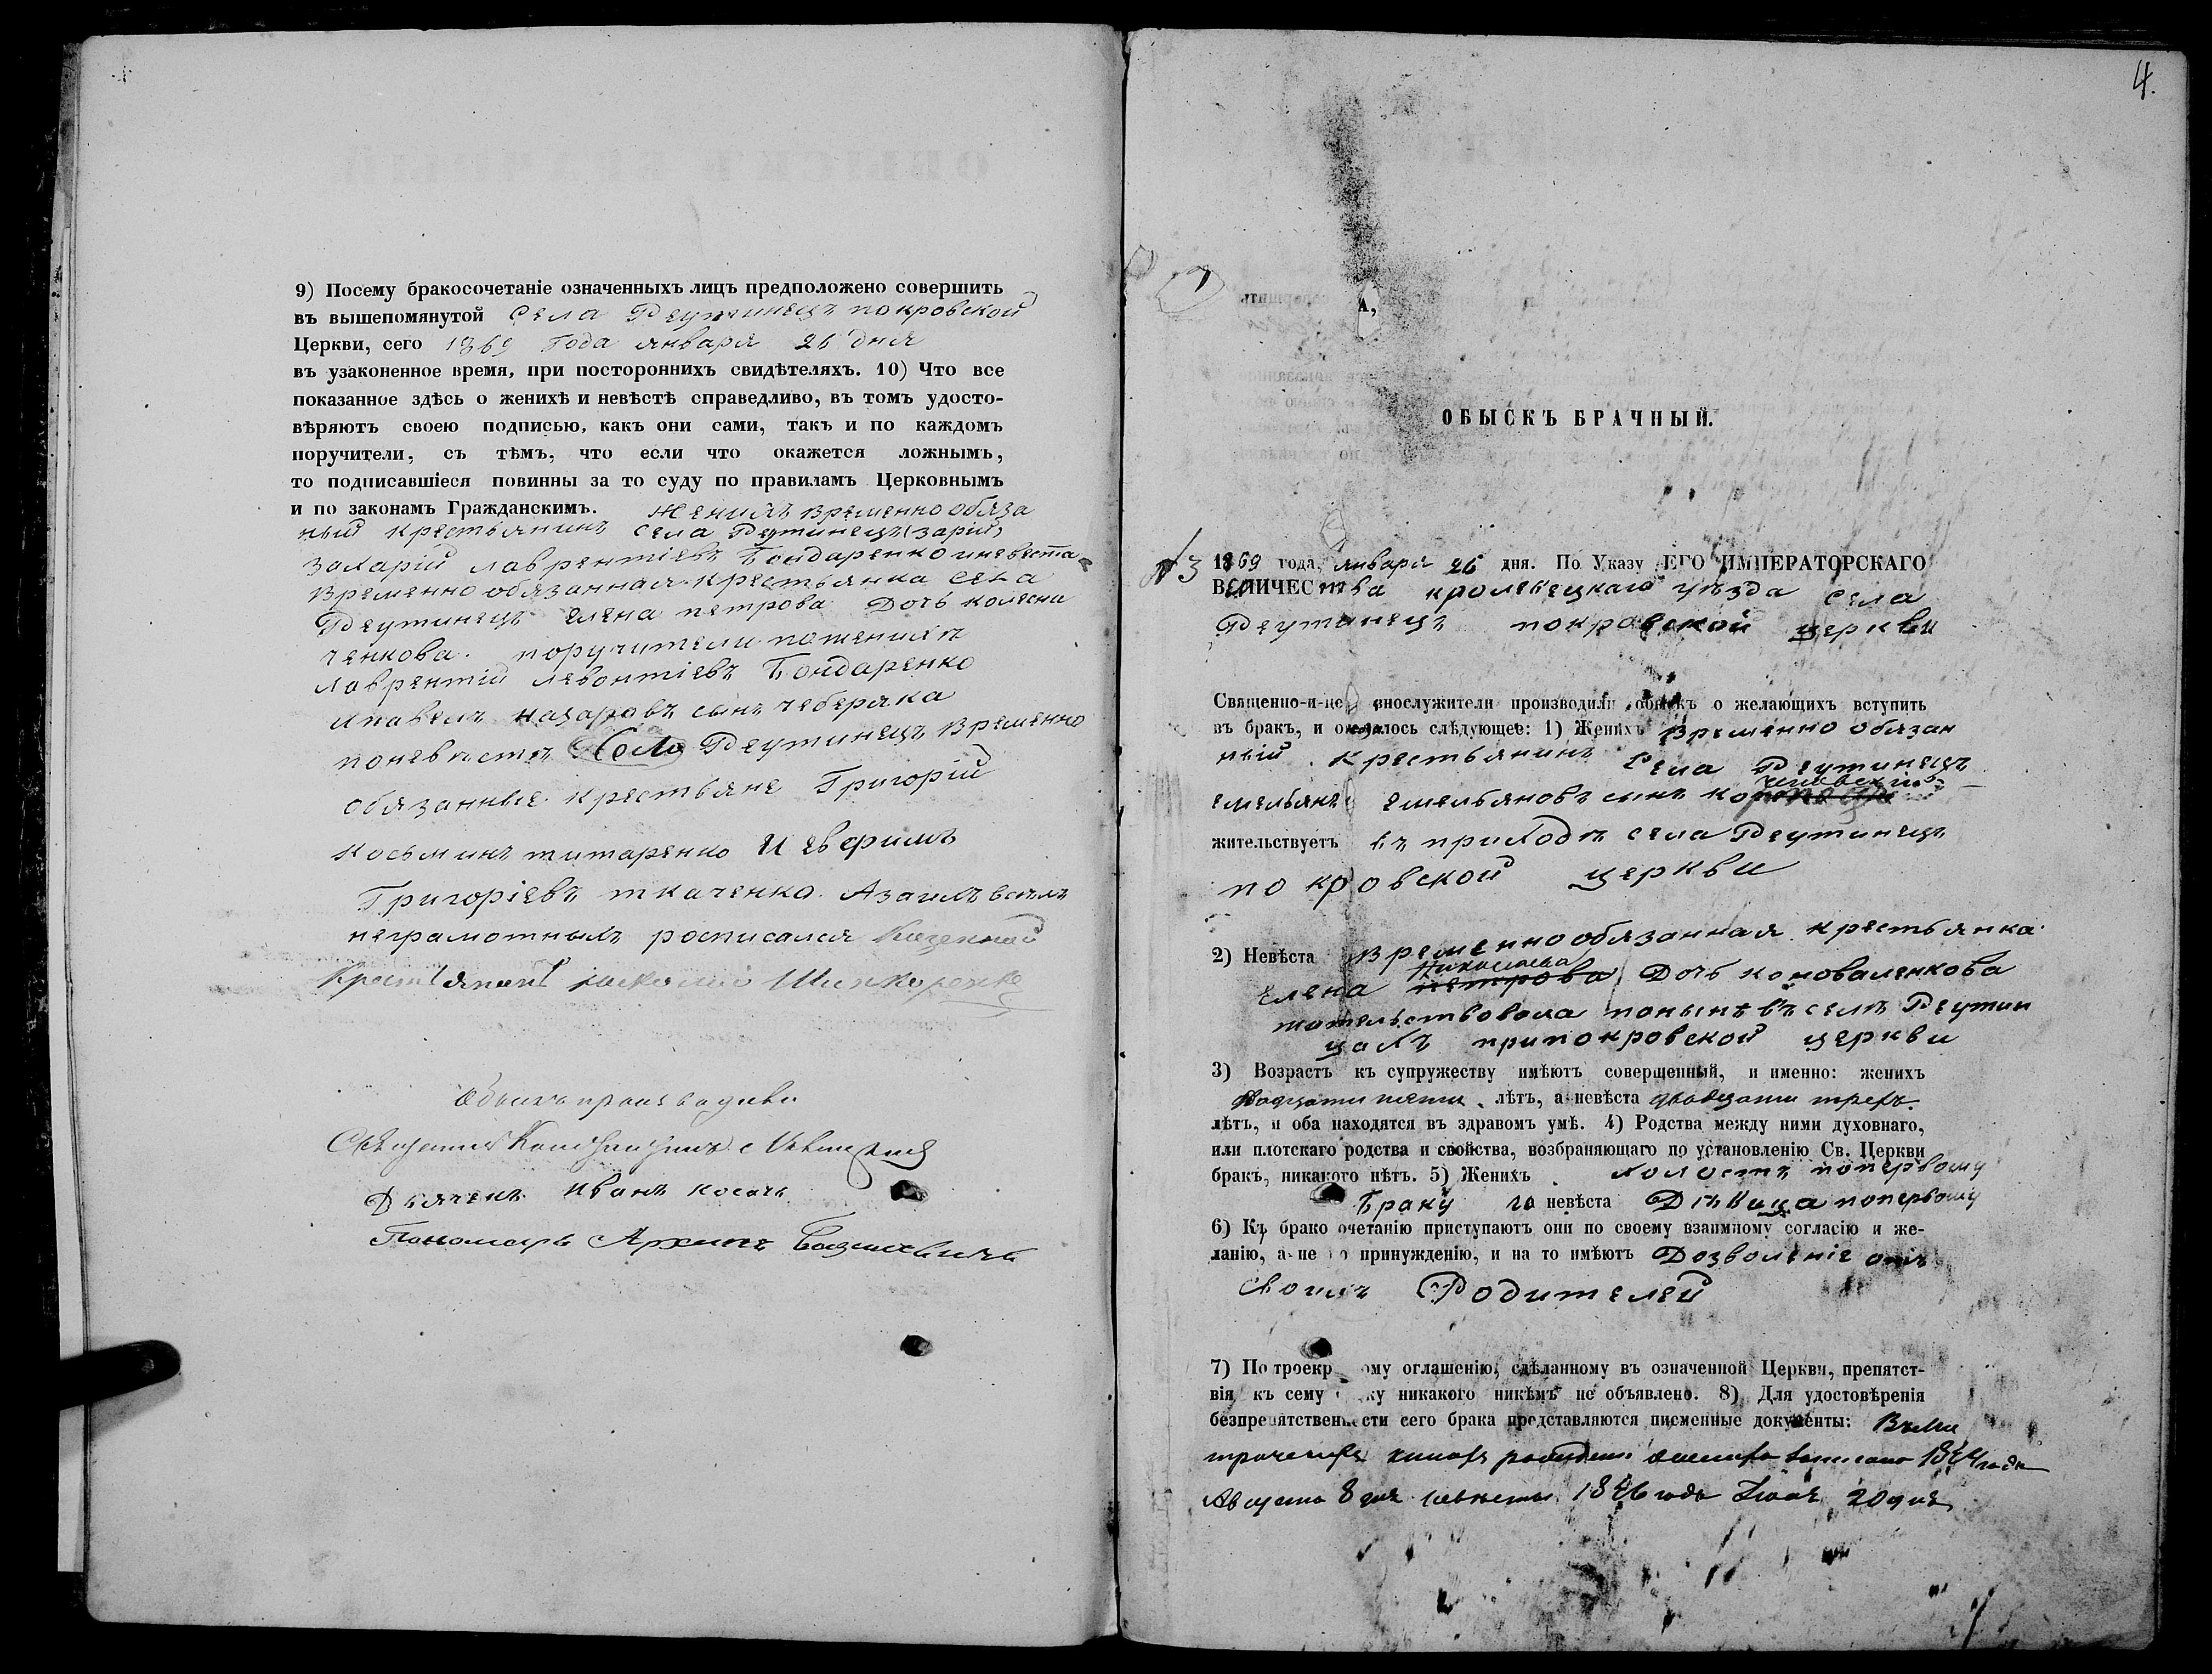 9) Посему бракосочетаніе означенныхъ лицъ предположено совершить
въ вышепомянутой Села Реутинецъ покровской
Церкви, сего 1869 Года января 26 дня
въ узаконенное время, при постороннихъ свидѣтеляхъ. 10) Что все
показанное здѣсь о женихѣ и невѣстѣ справедливо, въ томъ удосто-
вѣряютъ своею подписью, какъ они сами, такъ и по каждомъ
поручители, съ тѣмъ, что если что окажется ложнымъ,
то подписавшіеся повинны за то суду по правиламъ Церковнымъ
и по законамъ Гражданскимъ. Женихъ временно обяза
ный крестьянинъ села Реутинецъ
захарій лаврентіевъ Бондаренко иневеста
временно обязанная крестьянка села
Реутинецъ елена петрова Дочь колесни
ченкова. поручители поженихѣ
лаврентій левонтіевъ Бондаренко
ипавелъ назаровъ сынъ чеберяка
поневѣстѣ Села Реутинецъ временно
обязанные крестьяне Григорій
косьминъ титаренко и
Григоріевъ ткаченко. Азаихъ всехъ
неграмотныхъ росписался Казенный
Крестьянинъ Шинкоренко
Обыскъ производили
Священникъ Константинъ
Дьячекъ Иванъ косачъ
Пономарь Архипъ
4.
А,
ОБЫСКЪ БРАЧНЫЙ.
№3 1869 года, января 26 дня. По Указу ЕГО ИМПЕРАТОРСКАГО
ВЕЛИЧЕСтва кролевецкаго уѣзда села
Реутинецъ покровской церкви
Священно-и-це внослужители производили обыскъ о желающихъ вступить
въ бракъ, и оказалось слѣдующее: 1) Женихъ временно обязан
ный крестьянинъ Села Реутинецъ
емельянъ емельяновъ сынъ
жительствуетъ въ приходѣ села Реутинецъ
покровской церкви
2) Невѣста временно обязанная крестьянка
Николаева
елена петрова Дочь коноваленкова
жительствовала понынѣ въ селѣ Реутин
цахъ припокровской церкви
3) Возрастъ къ супружеству имѣютъ совершенный, и именно: женихъ
двадцати пяти лѣтъ, а невѣста двадцати трехъ
лѣтъ, и оба находятся въ здравомъ умѣ. 4) Родства между ними духовнаго,
или плотскаго родства и свойства, возбраняющаго по установленію Св. Церкви
бракъ, никакого нѣтъ. 5) Женихъ холостъ поперьвому
Браку а невѣста Дѣвица поперьвому
6) Къ брако очетанію приступаютъ они по своему взаимному согласію и же-
ланію, а не по принужденію, и на то имѣютъ Дозволеніе отъ
своихъ Родителей
7) По троекр ому оглашенію, сдѣланному въ означенной Церкви, препятст-
вія къ сему ку никакого никѣмъ не объявлено. 8) Для удостовѣренія
безпрепятственности сего брака представляются писменные документы: Въ ме
трической книгѣ рожденіе жениха записано 1844 года
Августа 8 дня невѣсты 1846 года 20 дня